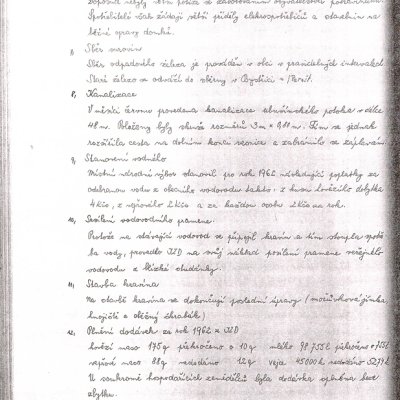 Spotřebitelé však žádají větší příděly elektrospotřebičů a stavebnin na
běžné opravy domků.
7, Sběr surovin
Sběr odpadového železa je prováděn v obci v pravidelných intervalech.
Staré železo se odváží do sběrny v Bystřici n/Pernšt.
8, Kanalizace
V měsíci červnu provedena kanalizace potoka v délce
48 m. Položeny byly skruže rozměrů 3 m × 0,80 m. Tím se jednak
rozšířila cesta na dolním konci vesnice a zabránilo se záplavám.
9, Stanovení vodného
Místní národní výbor stanovil pro rok 1962 následující poplatky za
odebranou vodu z obecního vodovodu takto: z kusu hovězího dobytka
4 Kčs, z vepřového 2 Kčs a za každou osobu Kčs na rok.
10, Sesílení vodovodního pramene.
Protože na stávající vodovod se připojil kravín a tím stoupla spotře-
ba vody, provedlo JZD na svůj náklad posílení pramene veřejného
vodovodu z blízké studánky.
11, Stavba kravína
Na stavbě kravína se dokončují poslední úpravy (močůvková jímka,
hnojiště a oběžný shrabák.)
12, Plnění dodávek za rok 1962 v JZD
hovězí maso 175 q překročeno o 10 q mléko 98 755 l překročeno o 755 l
vepřové maso 88 q nedodáno 12 q vejce 45000 k nedodáno 5274 k
U soukromě hospodařících zemědělců byla dodávka splněna beze
zbytku.